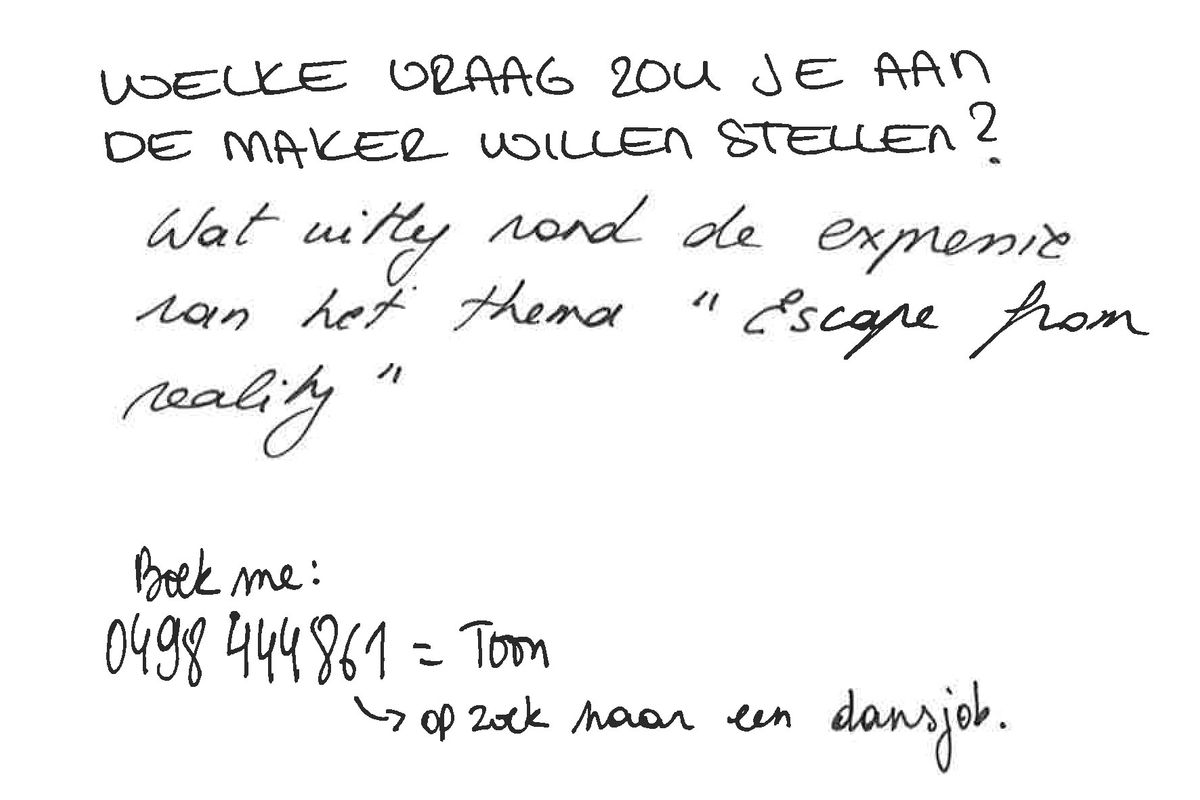 WELKE VRAAG ZOU JE AAN
DE MAKER WILLEN STELLEN?
Wat uitleg rond de expressie
van het thema "Escape from
reality"
Boek me:
0498 444861 = Toon
↳ op zoek naar een dansjob.